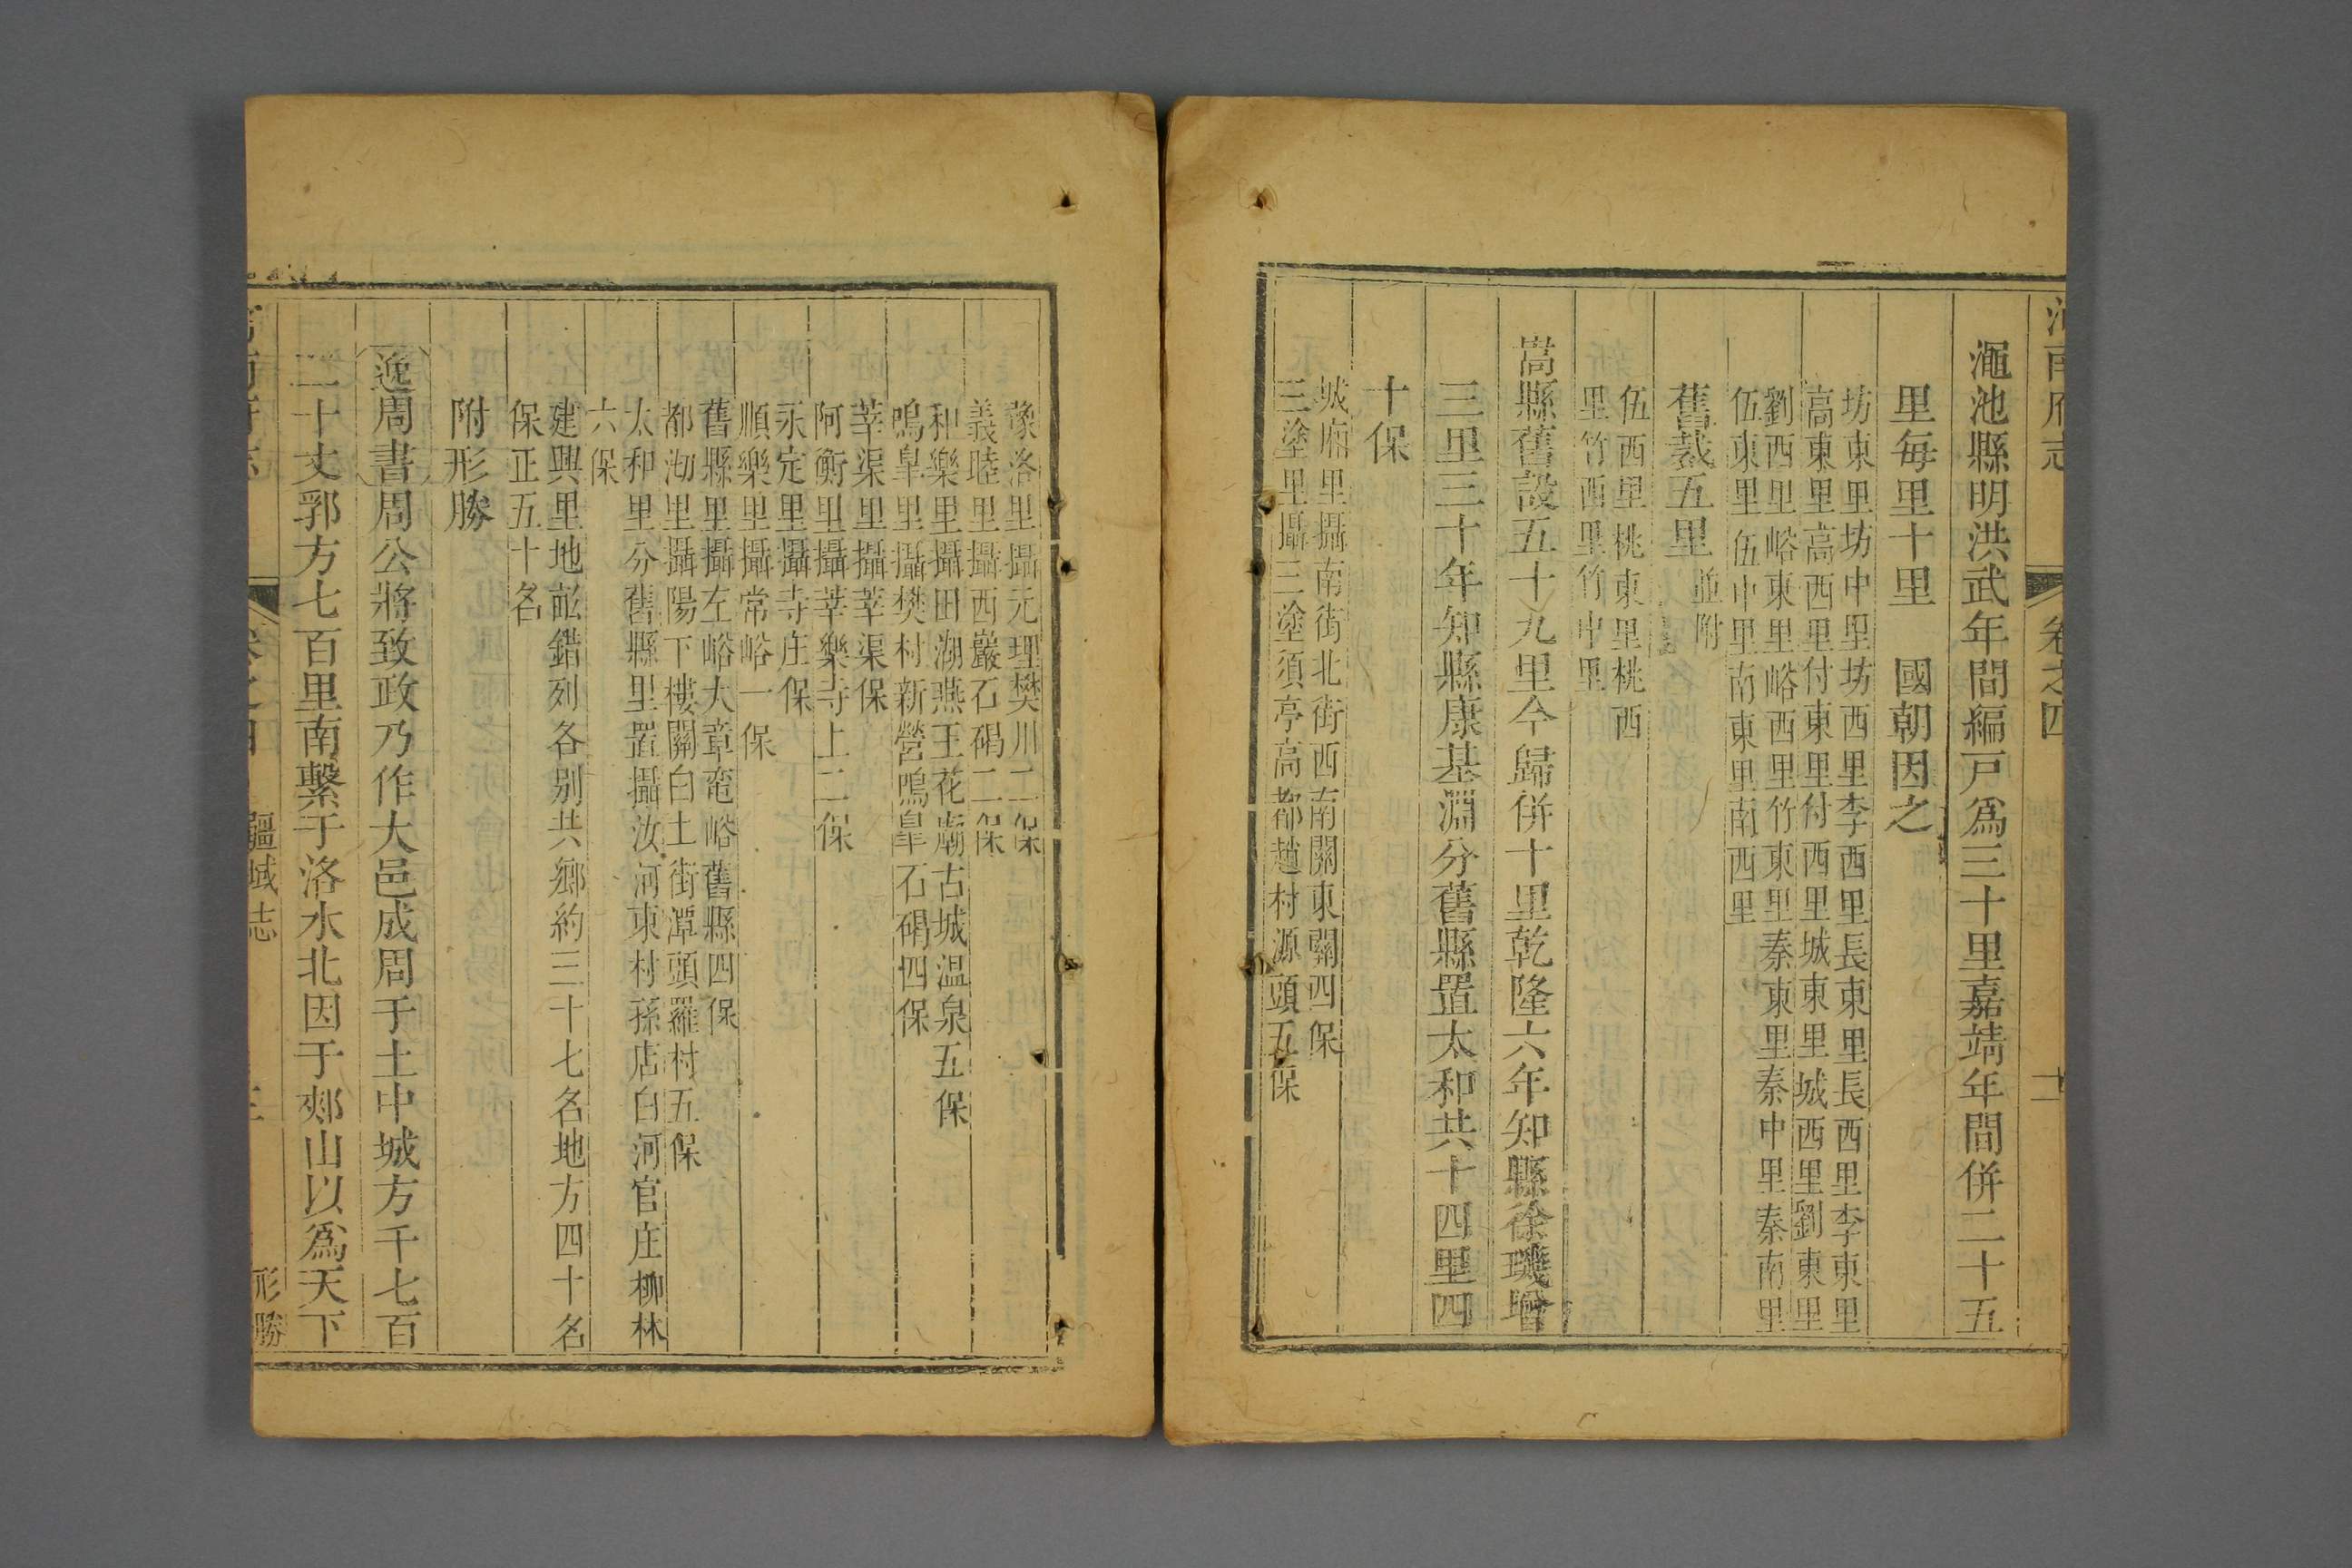 河南府志 卷之四 十一
澠池縣明洪武年間編戸爲三十里嘉靖年間併二十五
里每里十里 國朝因之
坊東里坊中里坊西里李西里長東里長西里李東里
高東里高西里付東里付西里城東里城西里劉東里
劉西里峪東里峪西里竹東里秦東里秦中里秦南里
伍東里伍中里南東里南西里
舊裁五里 並附
伍西里桃東里桃西
里竹西里竹中里
嵩縣舊設五十九里今歸併十里乾隆六年知縣徐璣增
三里三十年知縣康基淵分舊縣置太和共十四里四
十保
城廂里攝南街北街西南關東關四保
三塗里攝三塗須亭高都趙村源頭五保
豫洛里攝元理樊川二保
義睦里攝西巖石碣二保
和樂里攝田湖燕王花廟古城温泉五保
鳴臯里攝樊村新營鳴臯石碣四保
莘渠里攝莘渠保
阿衡里攝莘樂寺上二保
永定里攝寺庄保
順樂里攝常峪一保
舊縣里攝左峪大章竜峪舊縣四保
都泑里攝陽下樓關白土街潭頭羅村五保
太和里分舊縣里置攝汝河東村孫店白河官庄柳林
六保
建興里地畝錯列各别共鄉約三十七名地方四十名
保正五十名
附形勝
逸周書周公將致政乃作大邑成周于土中城方千七百
二十丈郛方七百里南繫于洛水北因于郟山以爲天下
卷之四 疆域志 形勝